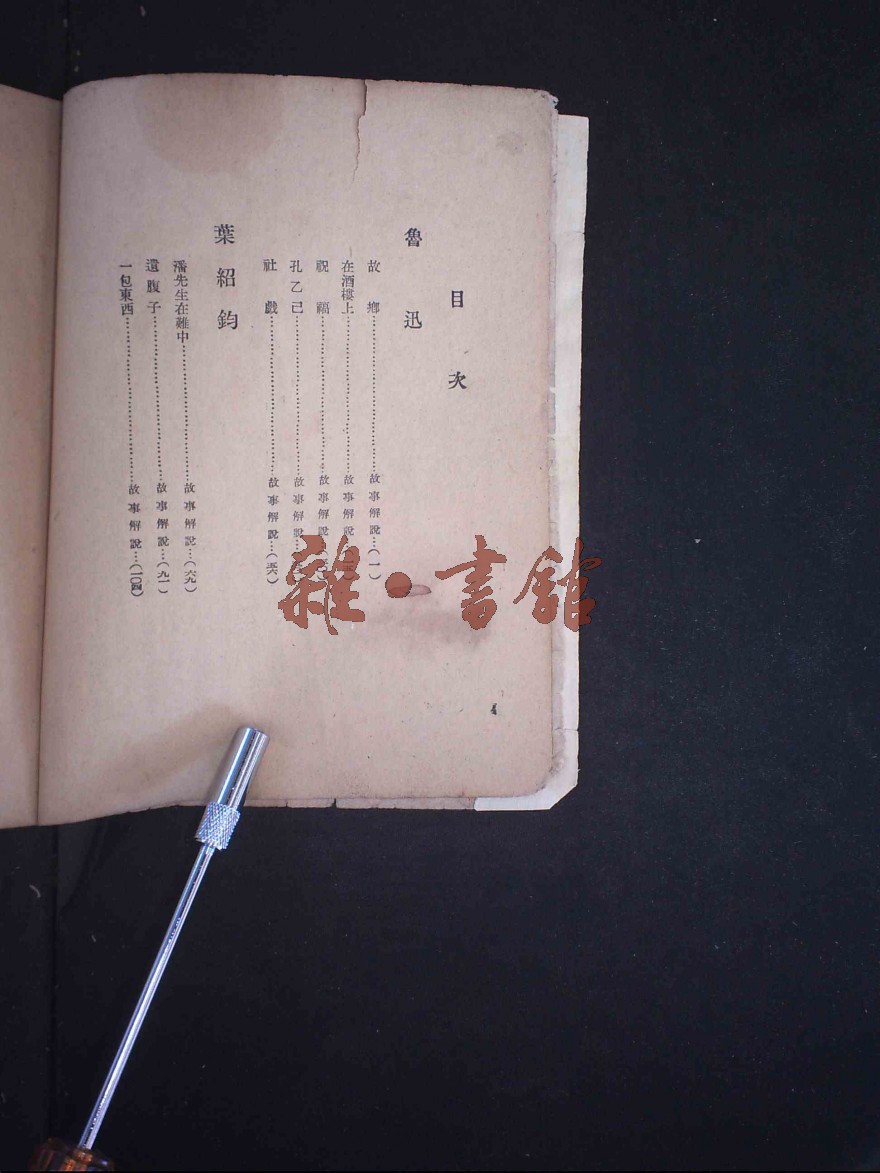 目次
魯迅
故鄉……故事解說…(一)
在酒樓上……故事解說
祝福……故事解說
孔乙己……故事解說
社戲……故事解說…(五六)
葉紹鈞
潘先生在難中……故事解說…(六九)
遺腹子……故事解說…(九一)
一包東西……故事解說…(一〇四)
雜·書館